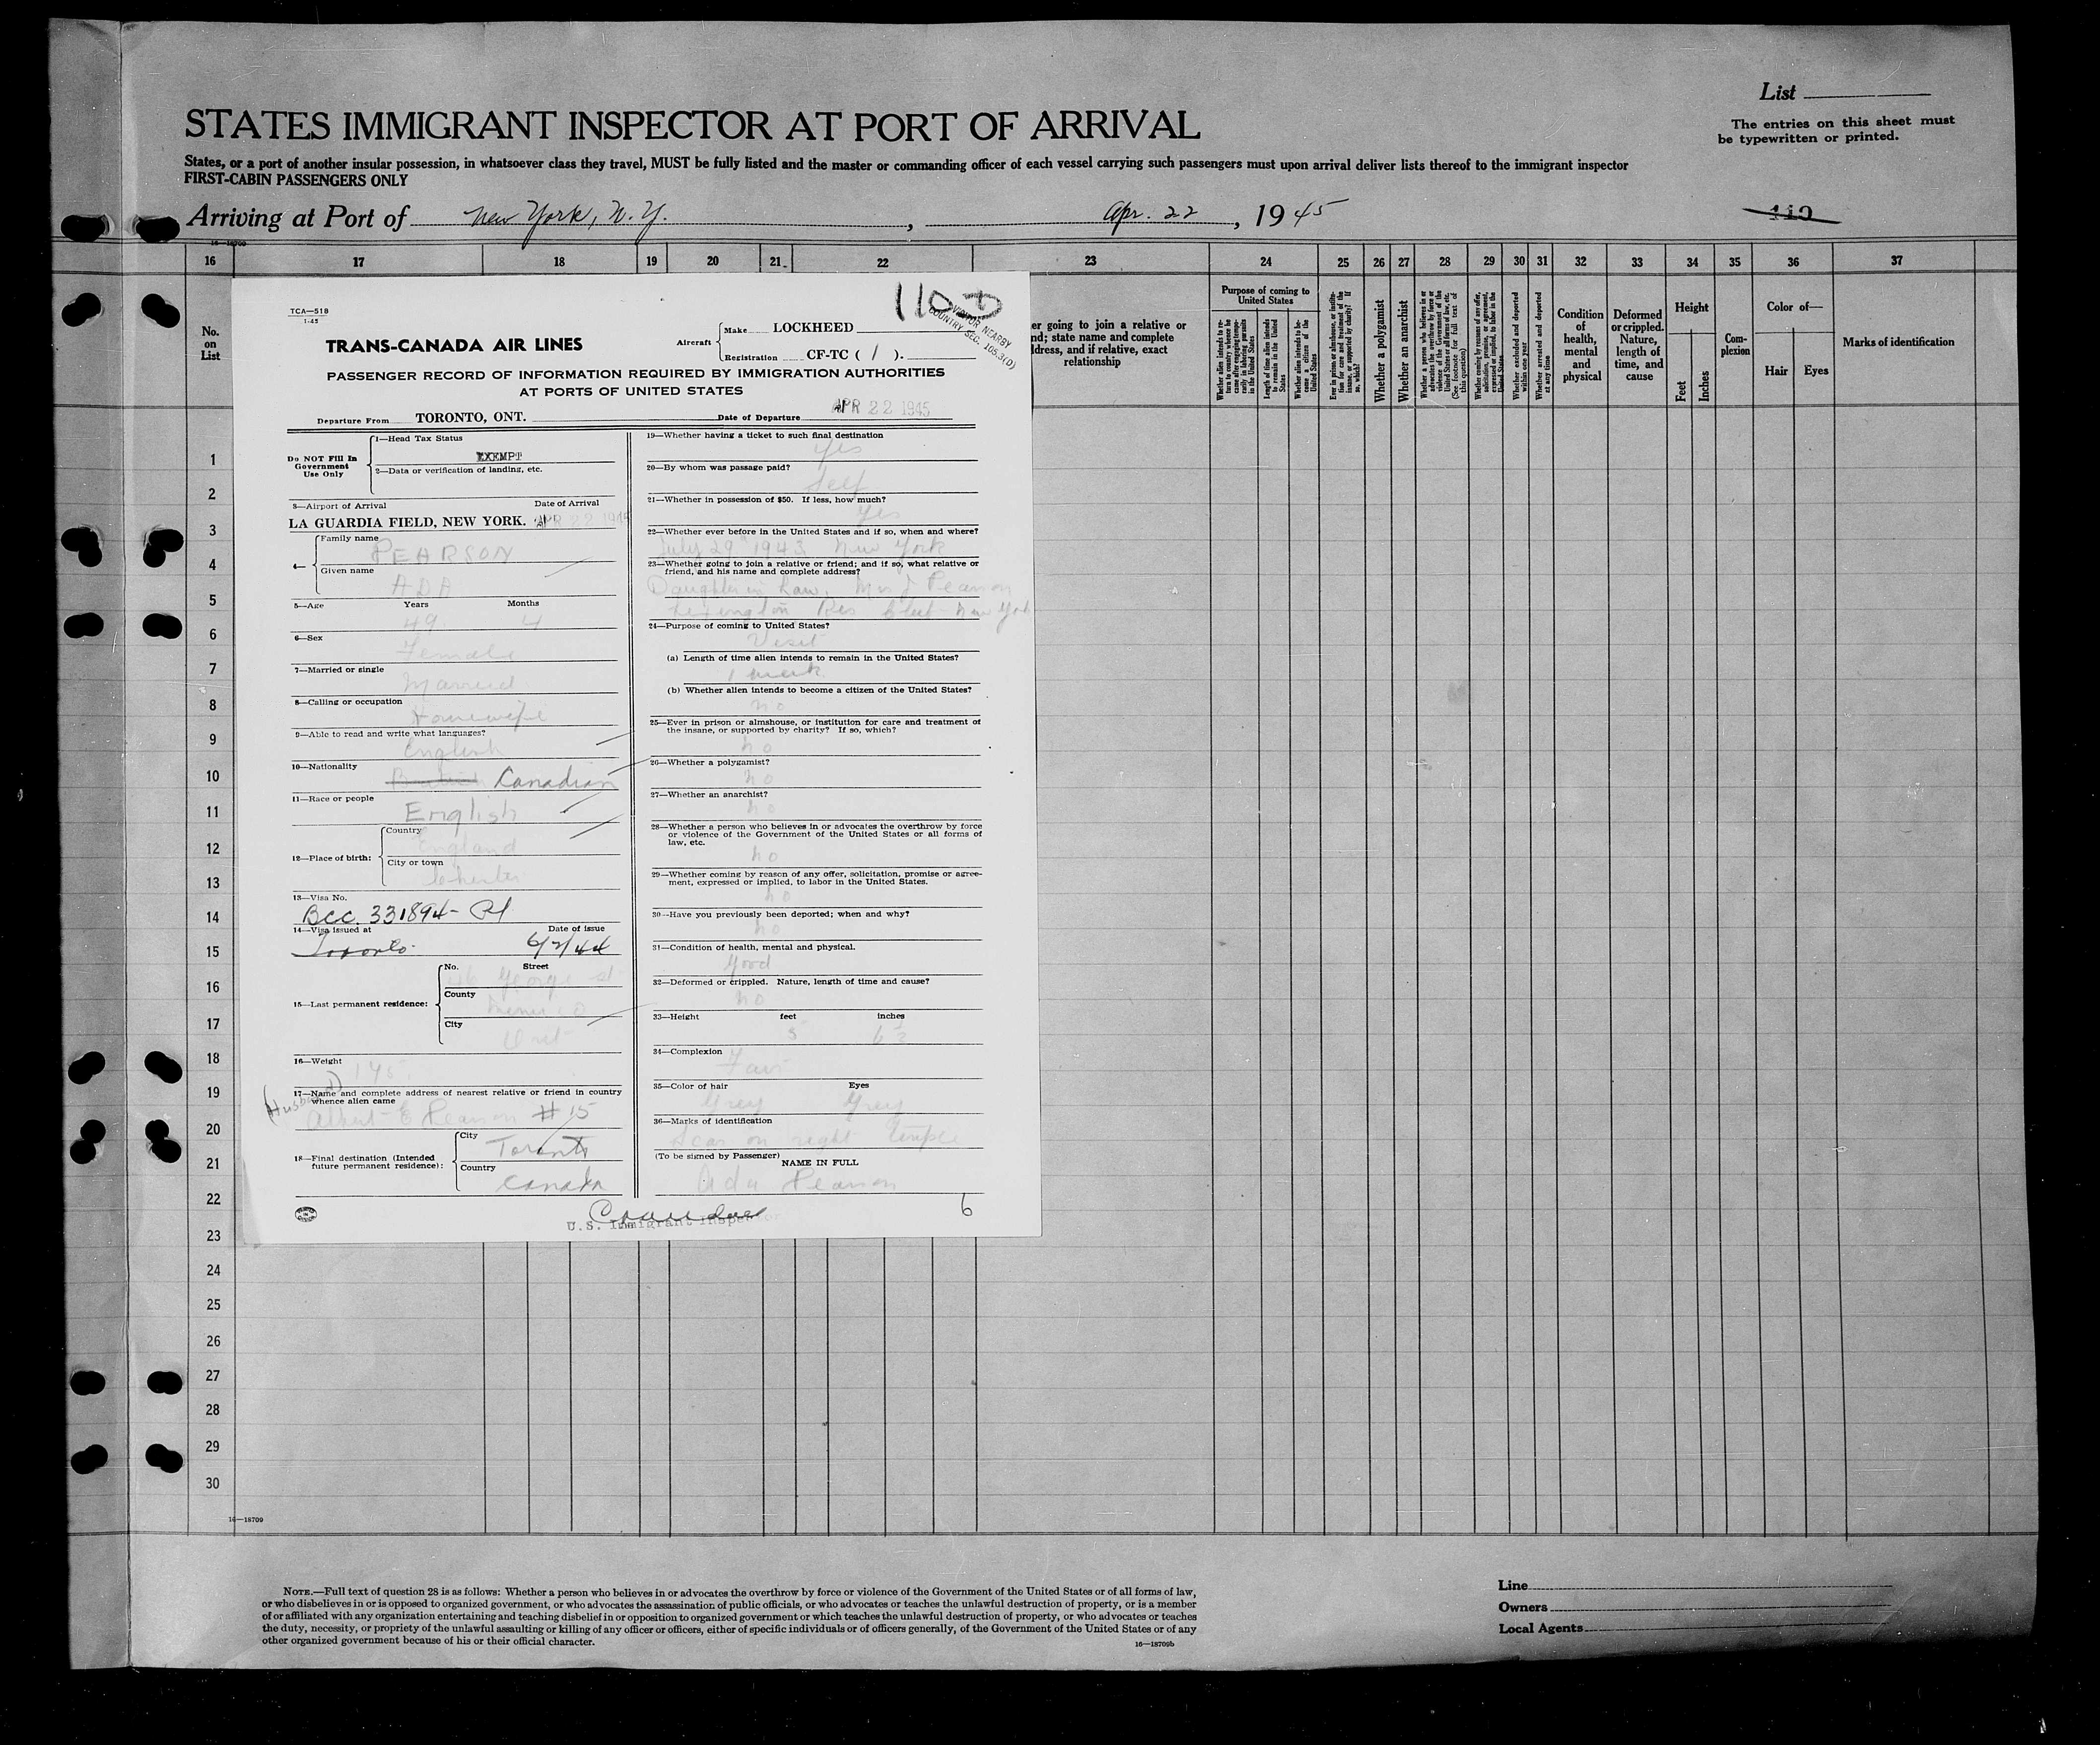 List
STATES IMMIGRANT INSPECTOR AT PORT OF ARRIVAL
The entries on this sheet must
be typewritten or printed.
States, or a port of another insular possession, in whatsoever class they travel, MUST be fully listed and the master or commanding officer of each vessel carrying such passengers must upon arrival deliver lists thereof to the immigrant inspector
FIRST-CABIN PASSENGERS ONLY
Arriving at Port of New York, N.Y., Apr. 22, 1945
110
16—18709
16 17 18 19 20 21 22 23 24 25 26 27 28 29 30 31 32 33 34 35 36 37
No.
on
List
er going to join a relative or
nd; state name and complete
ddress, and if relative, exact
relationship
Purpose of coming to
United States
Whether alien intends to return to country whence he came after engaging temporarily in laboring pursuits in the United States
Length of time alien intends to remain in the United States
Whether alien intends to become a citizen of the United States
Ever in prison or almshouse, or institution for care and treatment of the insane, or supported by charity? If so, which?
Whether a polygamist
Whether an anarchist
Whether a person who believes in or advocates the overthrow by force or violence of the Government of the United States or all forms of law, etc. (See footnote for full text of this question)
Whether coming by reasons of any offer, solicitation, promise, or agreement, expressed or implied, to labor in the United States
Whether excluded and deported within one year
Whether arrested and deported at any time
Condition
of
health,
mental
and
physical
Deformed
or crippled.
Nature,
length of
time, and
cause
Height
Feet
Inches
Com-
plexion
Color of—
Hair
Eyes
Marks of identification
1
2
3
4
5
6
7
8
9
10
11
12
13
14
15
16
17
18
19
20
21
22
23
24
25
26
27
28
29
30
110
VISITOR NEARBY
COUNTRY SEC. 105.3(D)
TCA—518
1-45
TRANS-CANADA AIR LINES
Aircraft
Make LOCKHEED
Registration CF-TC ( 1 ).
PASSENGER RECORD OF INFORMATION REQUIRED BY IMMIGRATION AUTHORITIES
AT PORTS OF UNITED STATES
Departure From TORONTO, ONT. Date of Departure APR 22 1945
Do NOT Fill In
Government
Use Only
1—Head Tax Status
EXEMPT
2—Data or verification of landing, etc.
3—Airport of Arrival Date of Arrival
LA GUARDIA FIELD, NEW YORK. APR 22 1945
4—
Family name
PEARSON
Given name
ADA
5—Age Years Months
49 4
6—Sex
Female
7—Married or single
Married
8—Calling or occupation
Housewife
9—Able to read and write what languages?
English
10—Nationality
British Canadian
11—Race or people
English
12—Place of birth:
Country
England
City or town
Chester
13—Visa No.
BCC. 331894-
14—Visa issued at Date of issue
Toronto 6/2/44
15—Last permanent residence:
No. Street
George st
County
Mimico
City
Ont
16—Weight
145
17—Name and complete address of nearest relative or friend in country
whence alien came
(Husband)
Albert E Pearson #15
18—Final destination (Intended
future permanent residence):
City
Toronto
Country
Canada
19—Whether having a ticket to such final destination
Yes
20—By whom was passage paid?
Self
21—Whether in possession of $50. If less, how much?
Yes
22—Whether ever before in the United States and if so, when and where?
July 29 1943 New York
23—Whether going to join a relative or friend; and if so, what relative or
friend, and his name and complete address?
Daughter in Law. Mrs J Pearson
Lexington Res Club New York
24—Purpose of coming to United States?
Visit
(a) Length of time alien intends to remain in the United States?
1 week
(b) Whether alien intends to become a citizen of the United States?
no
25—Ever in prison or almshouse, or institution for care and treatment of
the insane, or supported by charity? If so, which?
no
26—Whether a polygamist?
no
27—Whether an anarchist?
no
28—Whether a person who believes in or advocates the overthrow by force
or violence of the Government of the United States or all forms of
law, etc.
no
29—Whether coming by reason of any offer, solicitation, promise or agree-
ment, expressed or implied, to labor in the United States.
no
30—Have you previously been deported; when and why?
no
31—Condition of health, mental and physical.
Good
32—Deformed or crippled. Nature, length of time and cause?
no
33—Height feet inches
5 6½
34—Complexion
Fair
35—Color of hair Eyes
Grey Grey
36—Marks of identification
Scar on right temple
(To be signed by Passenger)
NAME IN FULL
Ada Pearson
U.S. Immigrant Inspector
6
16—18709
NOTE.—Full text of question 28 is as follows: Whether a person who believes in or advocates the overthrow by force or violence of the Government of the United States or of all forms of law,
or who disbelieves in or is opposed to organized government, or who advocates the assassination of public officials, or who advocates or teaches the unlawful destruction of property, or is a member
of or affiliated with any organization entertaining and teaching disbelief in or opposition to organized government or which teaches the unlawful destruction of property, or who advocates or teaches
the duty, necessity, or propriety of the unlawful assaulting or killing of any officer or officers, either of specific individuals or of officers generally, of the Government of the United States or of any
other organized government because of his or their official character.
16—18709b
Line
Owners
Local Agents